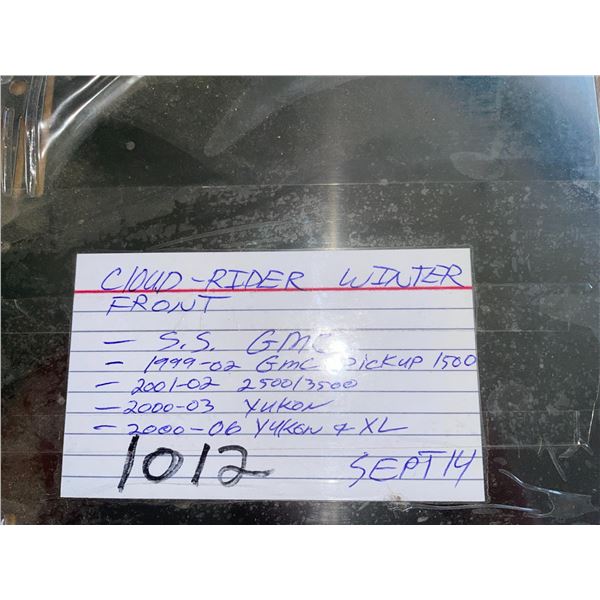 CLOUD-RIDER WINTER
FRONT
- S.S. GMC
- 1999-02 GMC PICKUP 1500
- 2001-02 2500/3500
- 2000-03 YUKON
- 2000-06 YUKON & XL
1012 SEPT 14